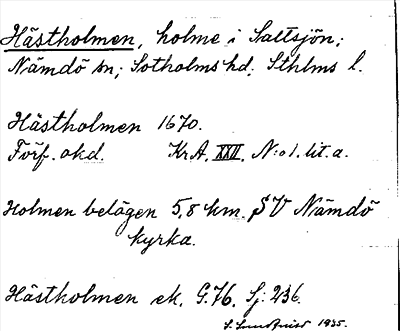 Hästholmen, holme i Saltsjön;
Nämdö sn; Sotholms hd. Sthlms l.
Hästholmen 1670.
Förf. okd. KrA. XXII. N:o 1. lit. a.
Holmen belägen 5,8 km. SV Nämdö
kyrka.
Hästholmen ek. G.76. Sj: 236.
S. Lundquist 1935.